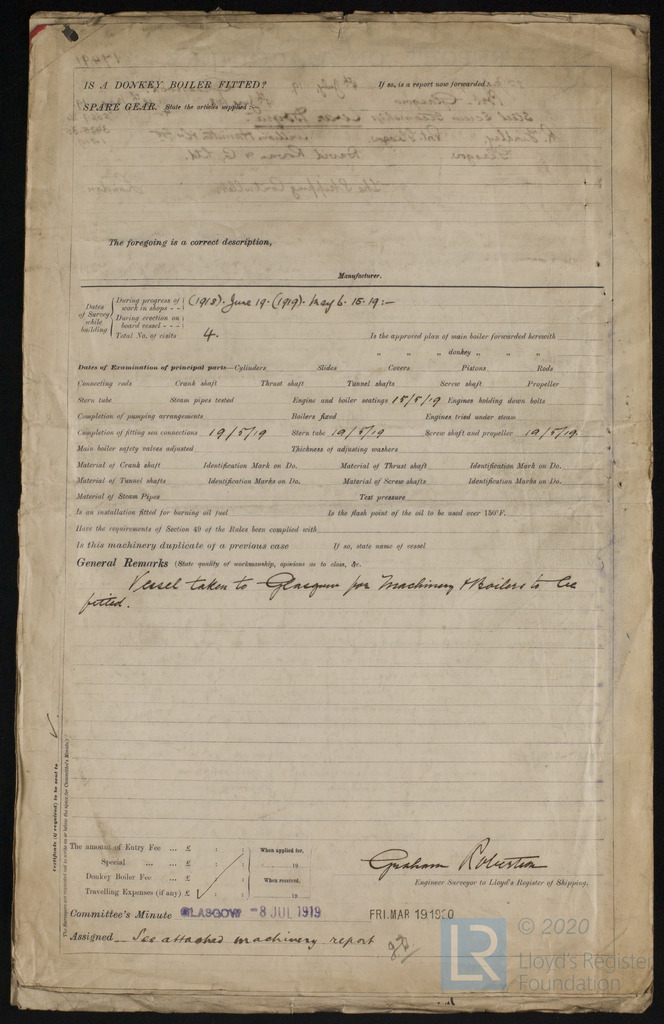 IS A DONKEY BOILER FITTED? If so, is a report now forwarded?
SPARE GEAR. State the articles supplied:—
The foregoing is a correct description,
Manufacturer.
Dates of Survey while building
During progress of work in shops - - (1918). June 19. (1919). May 6. 15. 19:—
During erection on board vessel - - -
Total No. of visits 4. Is the approved plan of main boiler forwarded herewith
" " " donkey " " "
Dates of Examination of principal parts—Cylinders Slides Covers Pistons Rods
Connecting rods Crank shaft Thrust shaft Tunnel shafts Screw shaft Propeller
Stern tube Steam pipes tested Engine and boiler seatings 15/5/19 Engines holding down bolts
Completion of pumping arrangements Boilers fixed Engines tried under steam
Completion of fitting sea connections 19/5/19 Stern tube 19/5/19 Screw shaft and propeller 19/5/19
Main boiler safety valves adjusted Thickness of adjusting washers
Material of Crank shaft Identification Mark on Do. Material of Thrust shaft Identification Mark on Do.
Material of Tunnel shafts Identification Marks on Do. Material of Screw shafts Identification Marks on Do.
Material of Steam Pipes Test pressure
Is an installation fitted for burning oil fuel Is the flash point of the oil to be used over 150°F.
Have the requirements of Section 49 of the Rules been complied with
Is this machinery duplicate of a previous case If so, state name of vessel
General Remarks (State quality of workmanship, opinions as to class, &c.
Vessel taken to Glasgow for Machinery & Boilers to be
fitted.
Certificate (if required) to be sent to
The amount of Entry Fee ... £ : : When applied for,
Special ... ... £ : : 19
Donkey Boiler Fee ... £ : : When received,
Travelling Expenses (if any) £ : : 19
Graham Robertson
Engineer Surveyor to Lloyd's Register of Shipping.
Committee's Minute GLASGOW -8 JUL 1919 FRI. MAR 19 1920
Assigned See attached machinery report
© 2020
LR Lloyd's Register
Foundation